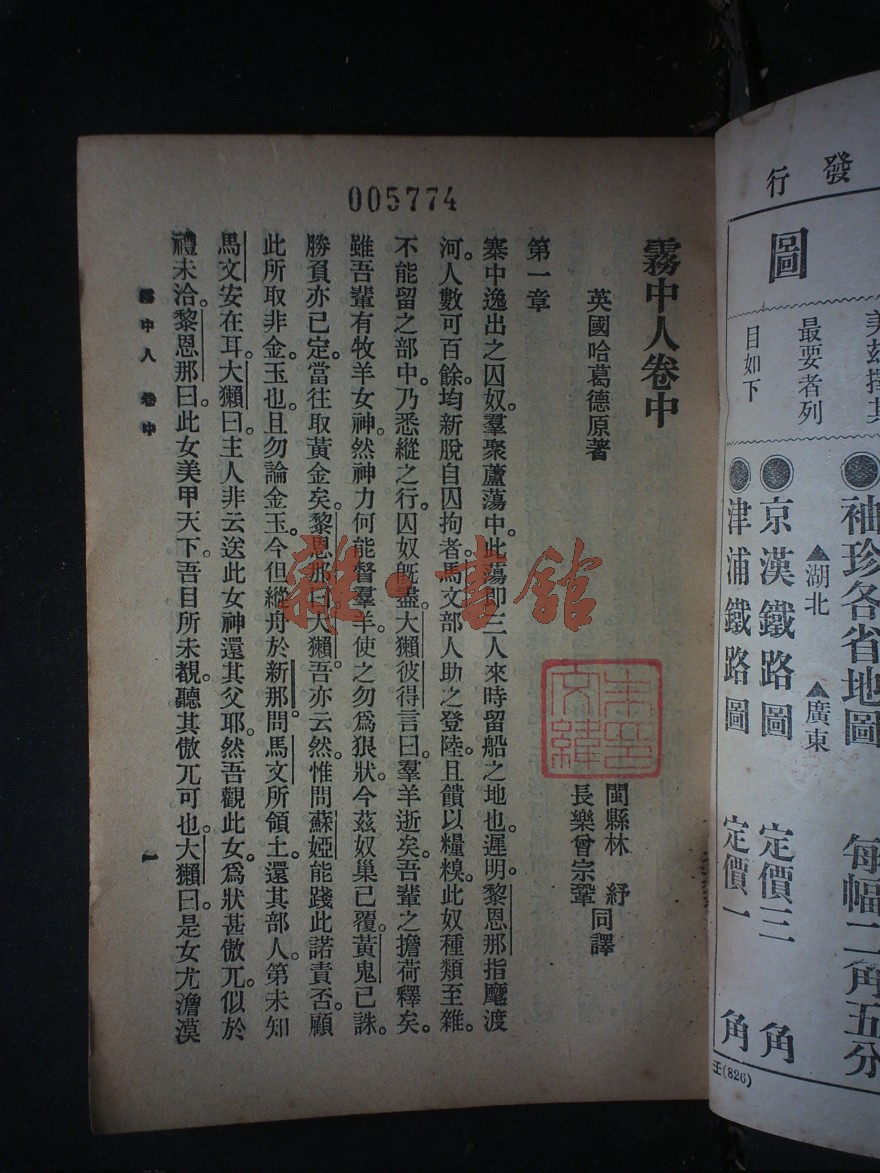 發行
圖
美茲擇其
最要者列
目如下
袖珍各省地圖 每幅二角五分
▲湖北 ▲廣東
京漢鐵路圖 定價三角
津浦鐵路圖 定價一角
王(826)
005774
霧中人卷中
英國哈葛德原著
閩縣林紓
長樂曾宗鞏
同譯
第一章
寨中逸出之囚奴。羣聚蘆蕩中。此蕩即三人來時留船之地也。遲明。黎恩那指麾渡
河。人數可百餘。均新脫自囚拘者。馬文部人助之登陸。且饋以糧糗。此奴種類至雜。
不能留之部中。乃悉縱之行。囚奴旣盡。大獺彼得言曰。羣羊逝矣。吾輩之擔荷釋矣。
雖吾輩有牧羊女神。然神力何能督羣羊。使之勿爲狠狀。今茲奴巢已覆。黃鬼已誅。
勝負亦已定。當往取黃金矣。黎恩那曰。大獺。吾亦云然。惟問蘇婭能踐此諾責否。顧
此所取非金玉也。且勿論金玉。今但縱舟於新那。問馬文所領土。還其部人。第未知
馬文安在耳。大獺曰。主人非云送此女神還其父耶。然吾觀此女。爲狀甚傲兀。似於
禮未洽。黎恩那曰。此女美甲天下。吾目所未覩。聽其傲兀可也。大獺曰。是女尤澹漠
霧中人 卷中
一
雜·書館